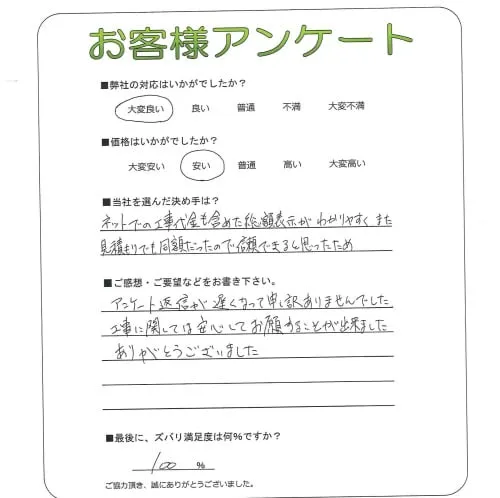 お客様アンケート
■弊社の対応はいかがでしたか？
大変良い 良い 普通 不満 大変不満
■価格はいかがでしたか？
大変安い 安い 普通 高い 大変高い
■当社を選んだ決め手は？
ネットでの工事代金も含めた総額表示がわかりやすく また
見積もりでも同額だったので信頼できると思ったため
■ご感想・ご要望などをお書き下さい。
アンケート返信が遅くなって申し訳ありませんでした
工事に関しては安心してお願いすることが出来ました
ありがとうございました
■最後に、ズバリ満足度は何％ですか？
100 ％
ご協力頂き、誠にありがとうございました。